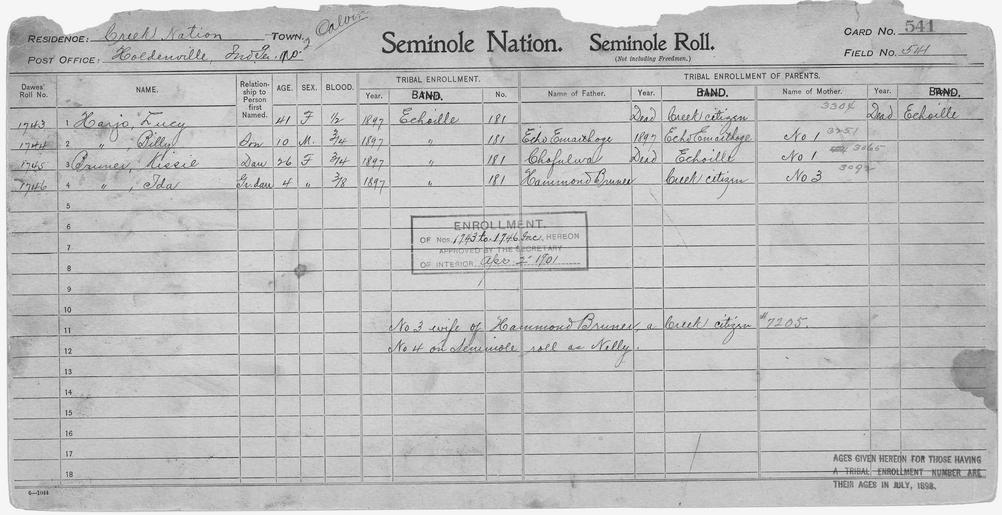 RESIDENCE: Creek Nation TOWN. Calvin
POST OFFICE: Holdenville, Ind Ter.
Seminole Nation. Seminole Roll.
(Not including Freedmen.)
CARD NO. 541
FIELD NO. 541
Dawes' Roll No. NAME. Relationship to Person first Named. AGE. SEX. BLOOD. TRIBAL ENROLLMENT. TRIBAL ENROLLMENT OF PARENTS.
Year. BAND. No. Name of Father. Year. BAND. Name of Mother. Year. BAND.
1743 1 Harjo, Lucy 41 F 1/2 1897 Echoille 181 Dead Creek citizen 3304 Dead Echoille
1744 2 " , Billy Son 10 M. 3/4 1897 " 181 Echo Emarthoge 1897 Echo Emarthoge No 1 3251
1745 3 Bruner, Kissie Dau 26 F 3/4 1897 " 181 Chofulwa Dead Echoille No 1 3065
1746 4 " , Ida Gr dau 4 " 3/8 1897 " 181 Hammond Bruner Creek citizen No 3 3092
5
6
7
8
9
10
ENROLLMENT.
OF NOS. 1743 to 1746 Inc. HEREON
APPROVED BY THE SECRETARY
OF INTERIOR, Apr 2" 1901
11 No 3 wife of Hammond Bruner a Creek citizen #7205.
12 No 4 on Seminole roll as Nelly.
13
14
15
16
17
18
AGES GIVEN HEREON FOR THOSE HAVING
A TRIBAL ENROLLMENT NUMBER ARE
THEIR AGES IN JULY, 1898.
6—1044